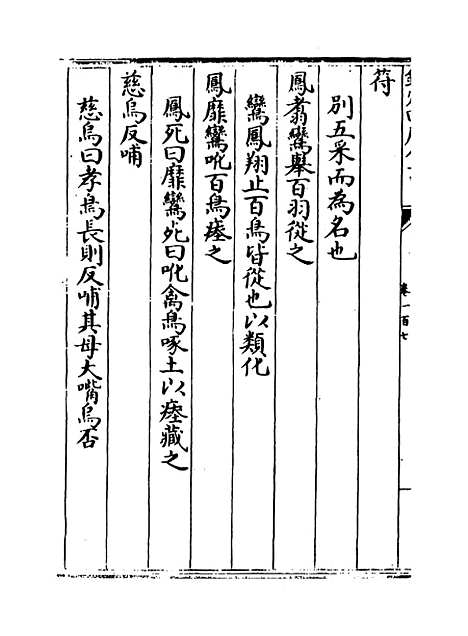 符
別五采而為名也
鳳翥鸞舉百羽從之
鸞鳳翔止百鳥皆從也以類化
鳳靡鸞吪百鳥瘞之
鳳死曰靡鸞死曰吪禽鳥啄土以瘞藏之
慈烏反哺
慈烏曰孝鳥長則反哺其母大嘴烏否
卷一百七